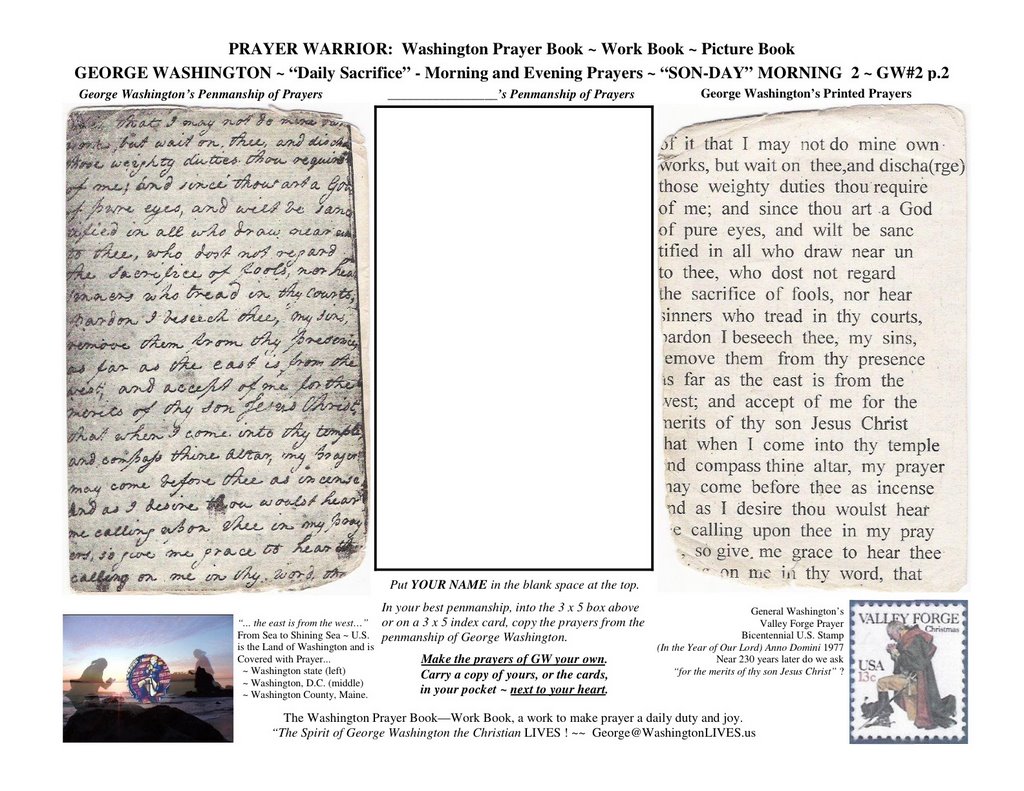 PRAYER WARRIOR: Washington Prayer Book ~ Work Book ~ Picture Book
GEORGE WASHINGTON ~ “Daily Sacrifice” - Morning and Evening Prayers ~ “SON-DAY” MORNING 2 ~ GW#2 p.2
George Washington’s Penmanship of Prayers
that I may not do mine own
works, but wait on thee, and discha
those weighty duties thou require
of me; and since thou art a God
of pure eyes, and wilt be sanc
tified in all who draw near un
to thee, who dost not regard
the sacrifice of fools, nor hear
sinners who tread in thy courts,
pardon I beseech thee, my sins,
remove them from thy presence
as far as the east is from the
west, and accept of me for the
merits of thy son Jesus Christ,
that when I come into thy temple
and compass thine altar, my prayer
may come before thee as incense,
and as I desire thou wouldst hear
me calling upon thee in my pray
ers, so give me grace to hear thee
calling on me in thy word, tha
_________________’s Penmanship of Prayers
George Washington’s Printed Prayers
of it that I may not do mine own
works, but wait on thee,and discha(rge)
those weighty duties thou require
of me; and since thou art a God
of pure eyes, and wilt be sanc
tified in all who draw near un
to thee, who dost not regard
the sacrifice of fools, nor hear
sinners who tread in thy courts,
pardon I beseech thee, my sins,
remove them from thy presence
as far as the east is from the
west; and accept of me for the
merits of thy son Jesus Christ
that when I come into thy temple
and compass thine altar, my prayer
may come before thee as incense
and as I desire thou woulst hear
me calling upon thee in my pray
, so give me grace to hear thee
on me in thy word, that
Put YOUR NAME in the blank space at the top.
In your best penmanship, into the 3 x 5 box above
or on a 3 x 5 index card, copy the prayers from the
penmanship of George Washington.
Make the prayers of GW your own.
Carry a copy of yours, or the cards,
in your pocket ~ next to your heart.
“... the east is from the west…”
From Sea to Shining Sea ~ U.S.
is the Land of Washington and is
Covered with Prayer...
~ Washington state (left)
~ Washington, D.C. (middle)
~ Washington County, Maine.
General Washington’s
Valley Forge Prayer
Bicentennial U.S. Stamp
(In the Year of Our Lord) Anno Domini 1977
Near 230 years later do we ask
“for the merits of thy son Jesus Christ” ?
VALLEY FORGE
Christmas
USA
13c
The Washington Prayer Book—Work Book, a work to make prayer a daily duty and joy.
“The Spirit of George Washington the Christian LIVES ! ~~ George@WashingtonLIVES.us